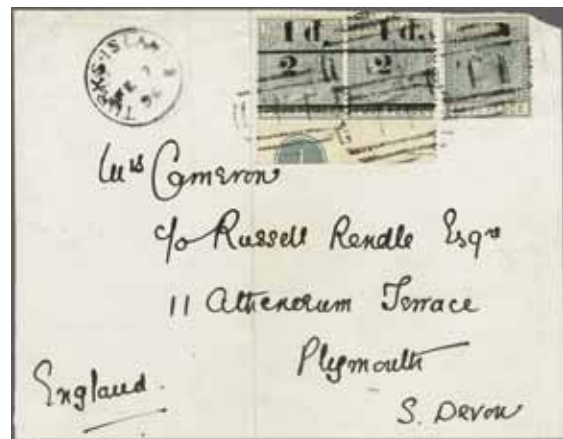 1d. 1d.
2 2
TURKS-ISLAN
Mrs Cameron
c/o Russell Rendle Esqre
11 Athenæum Terrace
Plymouth
England.
S. Devon